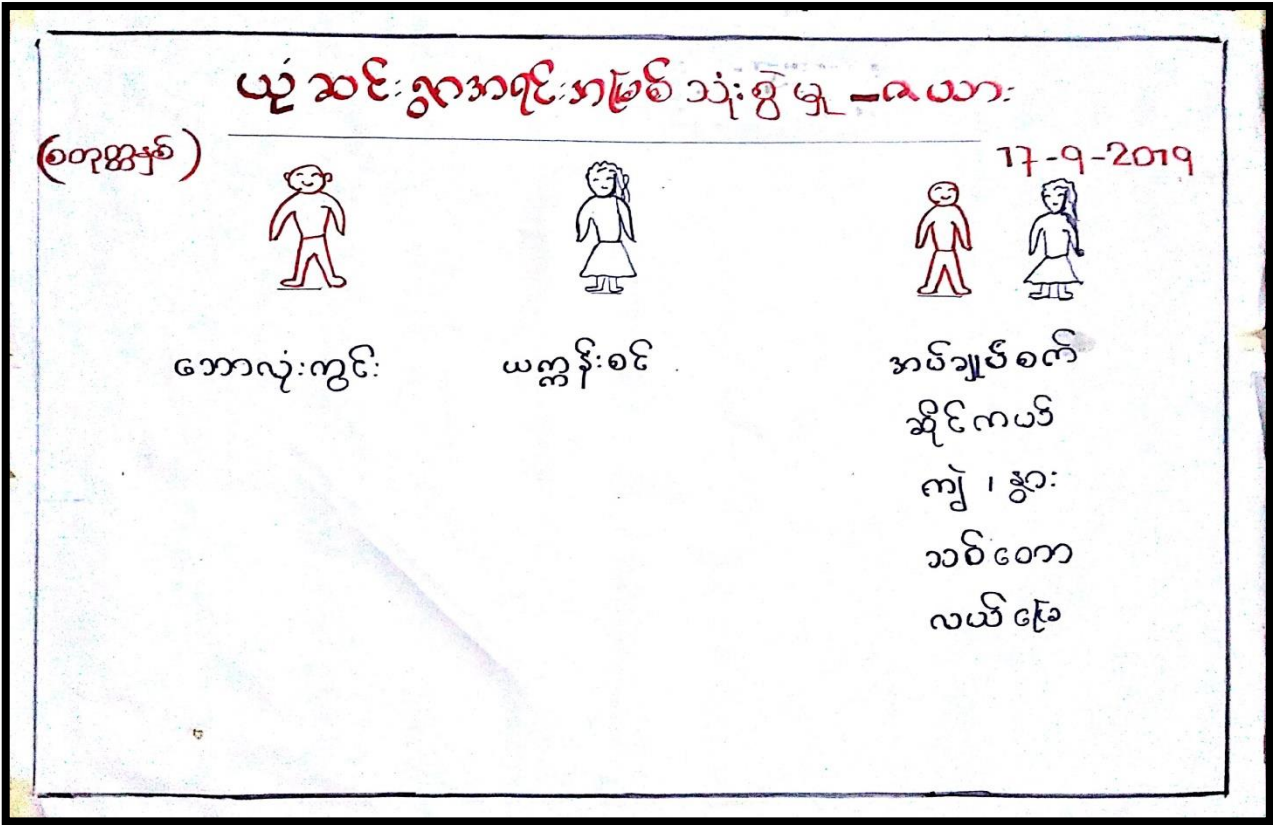 ယုံဆင်းရွာအရင်းအမြစ်သုံးစွဲမှု -ဇယား
(စတုတ္ထနှစ်)
17-9-2019
ဘောလုံးကွင်း ယက္ကန်းစင် အပ်ချုပ်စက်
ဆိုင်ကယ်
ကျွဲ ၊ နွား
သစ်တော
လယ်မြေ